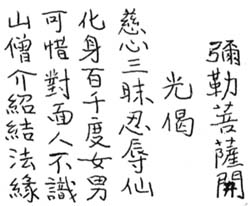 彌勒菩薩開
光偈
慈心三昧忍辱仙
化身百千度女男
可惜對面人不識
山僧介紹結法緣